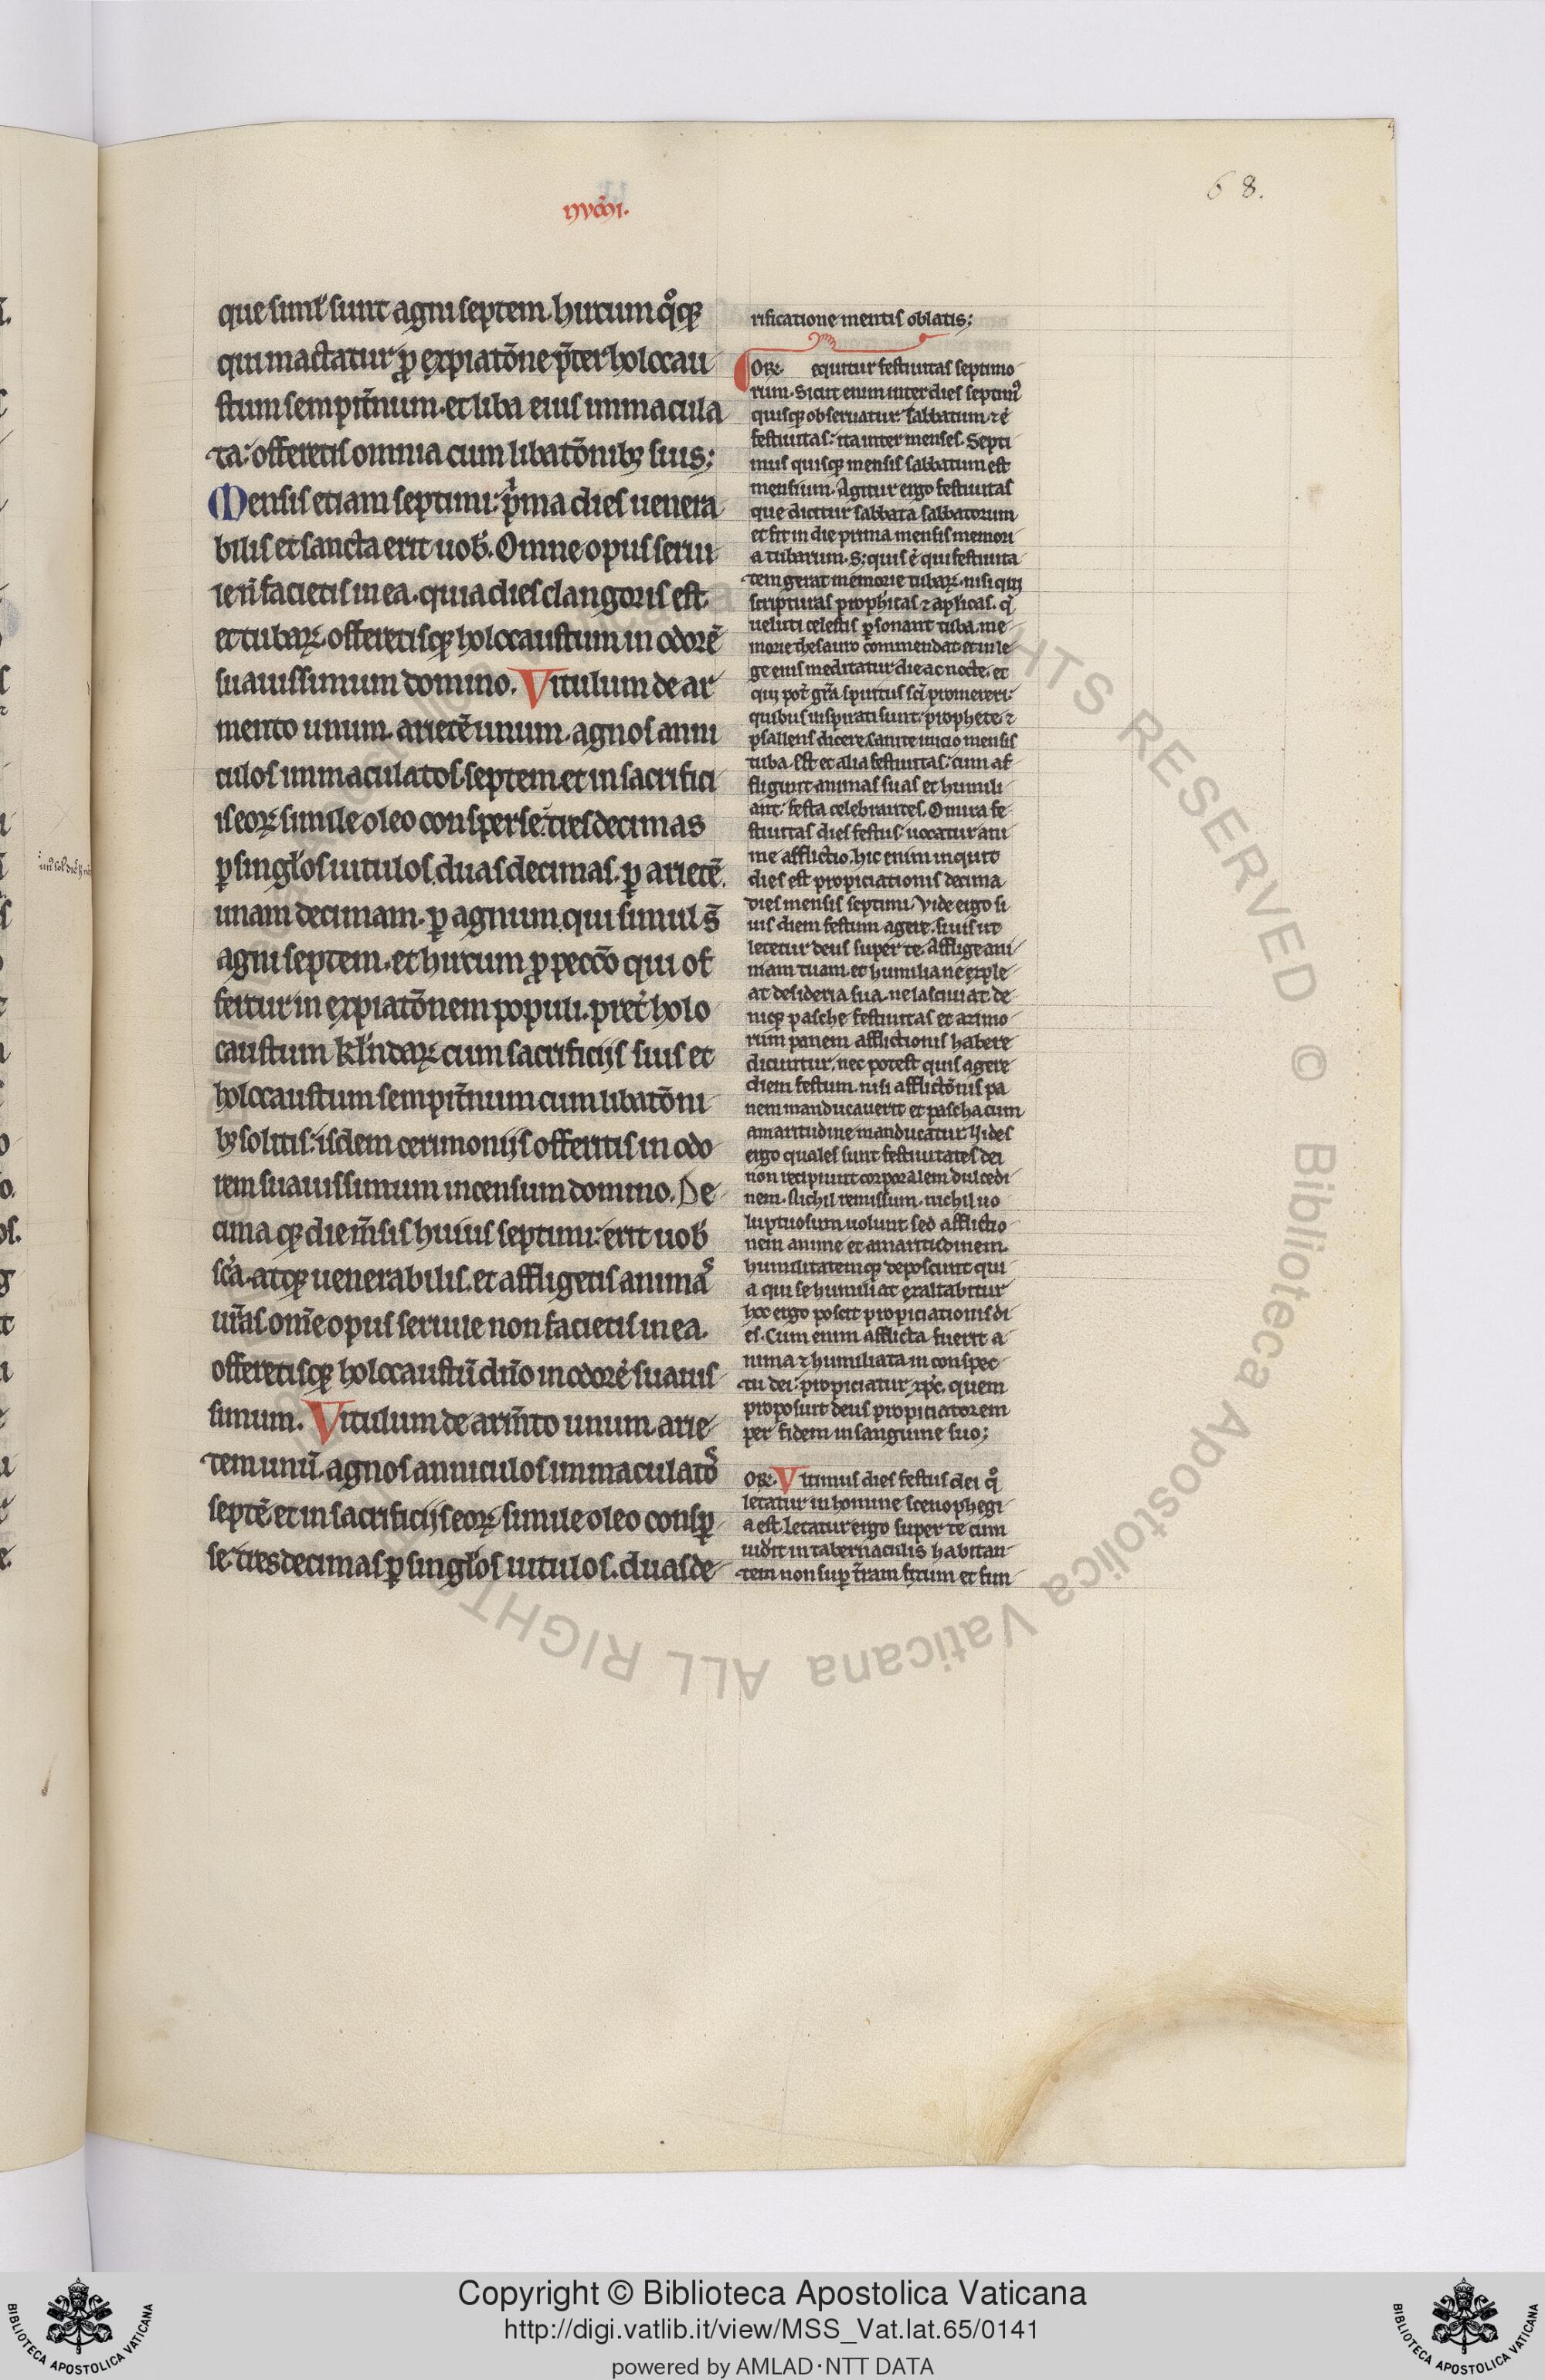 NVMI.
68.
que siml̛ sunt agni septem. hircum qͦq;
qui mactatur ꝓ expiatōne p̄ter holocau
stum sempit̄num. et liba eius immacula
ta: offeretis omnia cum libatōnibꝫ suis;
Mensis etiam septimi: pͥma dies uenera
bilis et sancta erit uob̄. Omne opus serui
le n̄ facietis in ea. quia dies clangoris est
et tubaꝝ. offeretisq; holocaustum in odorē
suauissimum domino. Vitulum de ar
mento unum. arietē unum. agnos anni
culos immaculatos septem. et in sacrifici
is eoꝝ simile oleo consperse: tres decimas
ꝑ singl̛os uitulos. duas decimas. ꝑ arietē.
unam decimam. ꝑ agnum. qui simul s̄
agni septem. et hircum ꝓ pecc̄o qui of
fertur in expiatōnem populi. pret̛ holo
caustum kl̄ndaꝝ cum sacrificijs suis et
holocaustum sempit̄num cum libatōni
bꝫ solitis: isdem cerimonijs offeritis in odo
rem suauissimum incensum domino. De
cima q; die m̄sis huius septimi: erit uob̄
sc̄a. atq; uenerabilis. et affligetis animaˢ
ur̄as. om̄e opus seruile non facietis in ea.
offeretisq; holocaustū dn̄o in odorē suauis
simum. Vitulum de arm̄to unum. arie
tem unū. agnos anniculos immaculatoˢ
septē. et in sacrificijs eoꝝ simile oleo consꝑ
se. tres decimas ꝑ singl̛os uitulos. duas de
rificatione mentis oblatis;
ORꝭ. equitur festiuitas septimo
rum. Sicut enim inter dies septimꝰ
quisq; obseruatur. sabbatum ⁊ ē
festiuitas: ita inter menses. Septi
mus quisq; mensis sabbatum est
mensium. Agitur ergo festiuitas
que dicitur sabbata sabbatorum
et fit in die prima mensis memori
a tubarum. S; quis ē qui festiuita
tem gerat memorie tubaꝝ. nisi qui
scripturas prophicas ⁊ aplicas. q̄
ueluti celestis ꝑsonant tuba. me
morie thesauro commendat. et in le
ge eius meditatur die ac nocte. et
qui pot̄ gr̄a spiritus sc̄i promereri:
quibus inspirati sunt prophete. ⁊
psallens dicere. Canite inicio mensis
tuba. Est et alia festiuitas: cum af
fligunt animas suas et humili
ant: festa celebrantes. O mira fe
stiuitas dies festus uocatur ani
me afflictio. hic enim inquit
dies est propiciationis decima
dies mensis septimi. Vide ergo si
uis diem festum agere. si uis ut
letetur deus super te. Afflige ani
mam tuam. et humilia ne exple
at desideria sua. ne lasciuiat. de
niq; pasche festiuitas et azimo
rum panem afflictionis habere
dicuntur. nec potest quis agere
diem festum. nisi afflictōnis pa
nem manducauerit et pascha cum
amaritudine manducatur. Vides
ergo quales sunt festiuitates dei
non recipiunt corporalem dulcedi
nem. Nichil remissum. nichil uo
luptuosum uolunt. sed afflictio
nem anime et amaritudinem.
humilitatemq; deposcunt qui
a qui se humiliat exaltabitur
hoc ergo poscit propiciationis di
es. Cum enim afflicta fuerit a
nima ⁊ humiliata in conspec
tu dei: propiciatur xp̄c. quem
proposuit deus propiciatorem
per fidem in sanguine suo;
ORꝭ. Vltimus dies festus dei qͦ
letatur in homine scenophegi
a est. letatur ergo super te cum
uid̛it in tabernaculis habitan
tem non suꝑ t̄ram fixum et fun
ALL RIGHTS RESERVED © Biblioteca Apostolica Vaticana
Copyright © Biblioteca Apostolica Vaticana
http://digi.vatlib.it/view/MSS_Vat.lat.65/0141
powered by AMLAD·NTT DATA
BIBLIOTECA APOSTOLICA VATICANA
BIBLIOTECA APOSTOLICA VATICANA